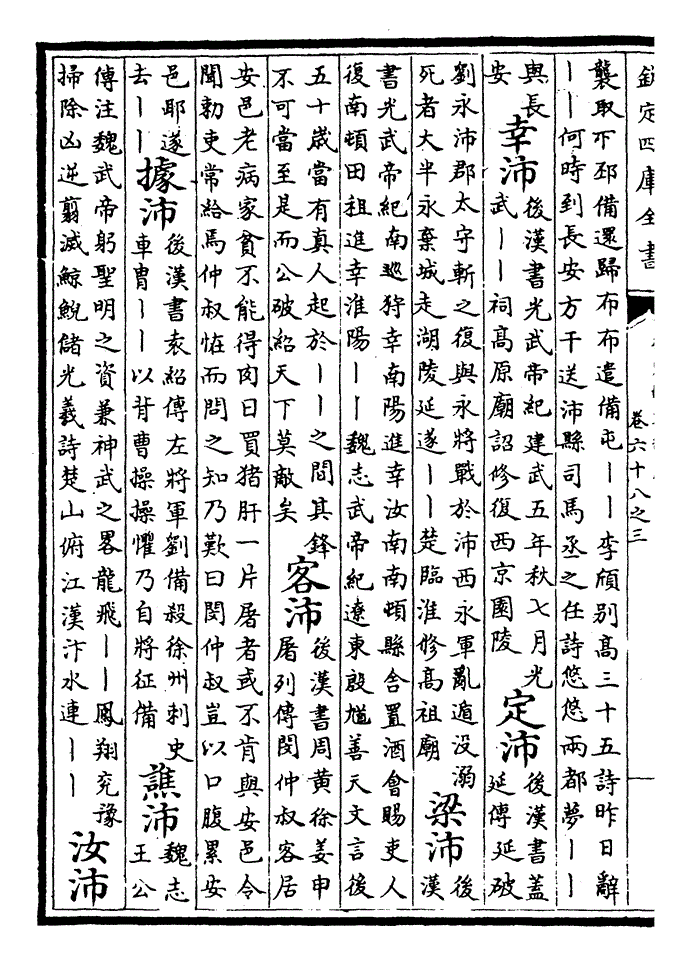 欽定四庫全書
卷六十八之三
襲取下邳備還歸布布遣備屯丨丨李頎别髙三十五詩昨日辭
丨丨何時到長安方干送沛縣司馬丞之任詩悠悠兩都夢丨丨
與長
安
幸沛
後漢書光武帝紀建武五年秋七月光
武丨丨祠髙原廟詔修復西京園陵
定沛
後漢書蓋
延傳延破
劉永沛郡太守斬之復與永將戰於沛西永軍亂遁没溺
死者大半永棄城走湖陵延遂丨丨楚臨淮修髙祖廟
梁沛
後
漢
書光武帝紀南廵狩幸南陽進幸汝南南頓縣舍置酒會賜吏人
復南頓田租進幸淮陽丨丨魏志武帝紀遼東殷馗善天文言後
五十歲當有真人起於丨丨之間其鋒
不可當至是而公破紹天下莫敵矣
客沛
後漢書周黄徐姜申
屠列傳閔仲叔客居
安邑老病家貧不能得肉日買猪肝一片屠者或不肯與安邑令
聞勅吏常給焉仲叔恠而問之知乃歎曰閔仲叔豈以口腹累安
邑耶遂
去丨丨
據沛
後漢書袁紹傳左將軍劉備殺徐州刺史
車胄丨丨以背曹操操懼乃自將征備
譙沛
魏志
王公
傳注魏武帝躬聖明之資兼神武之畧龍飛丨丨鳳翔兖豫
掃除凶逆翦滅鯨鯢儲光羲詩楚山俯江漢汴水連丨丨
汝沛